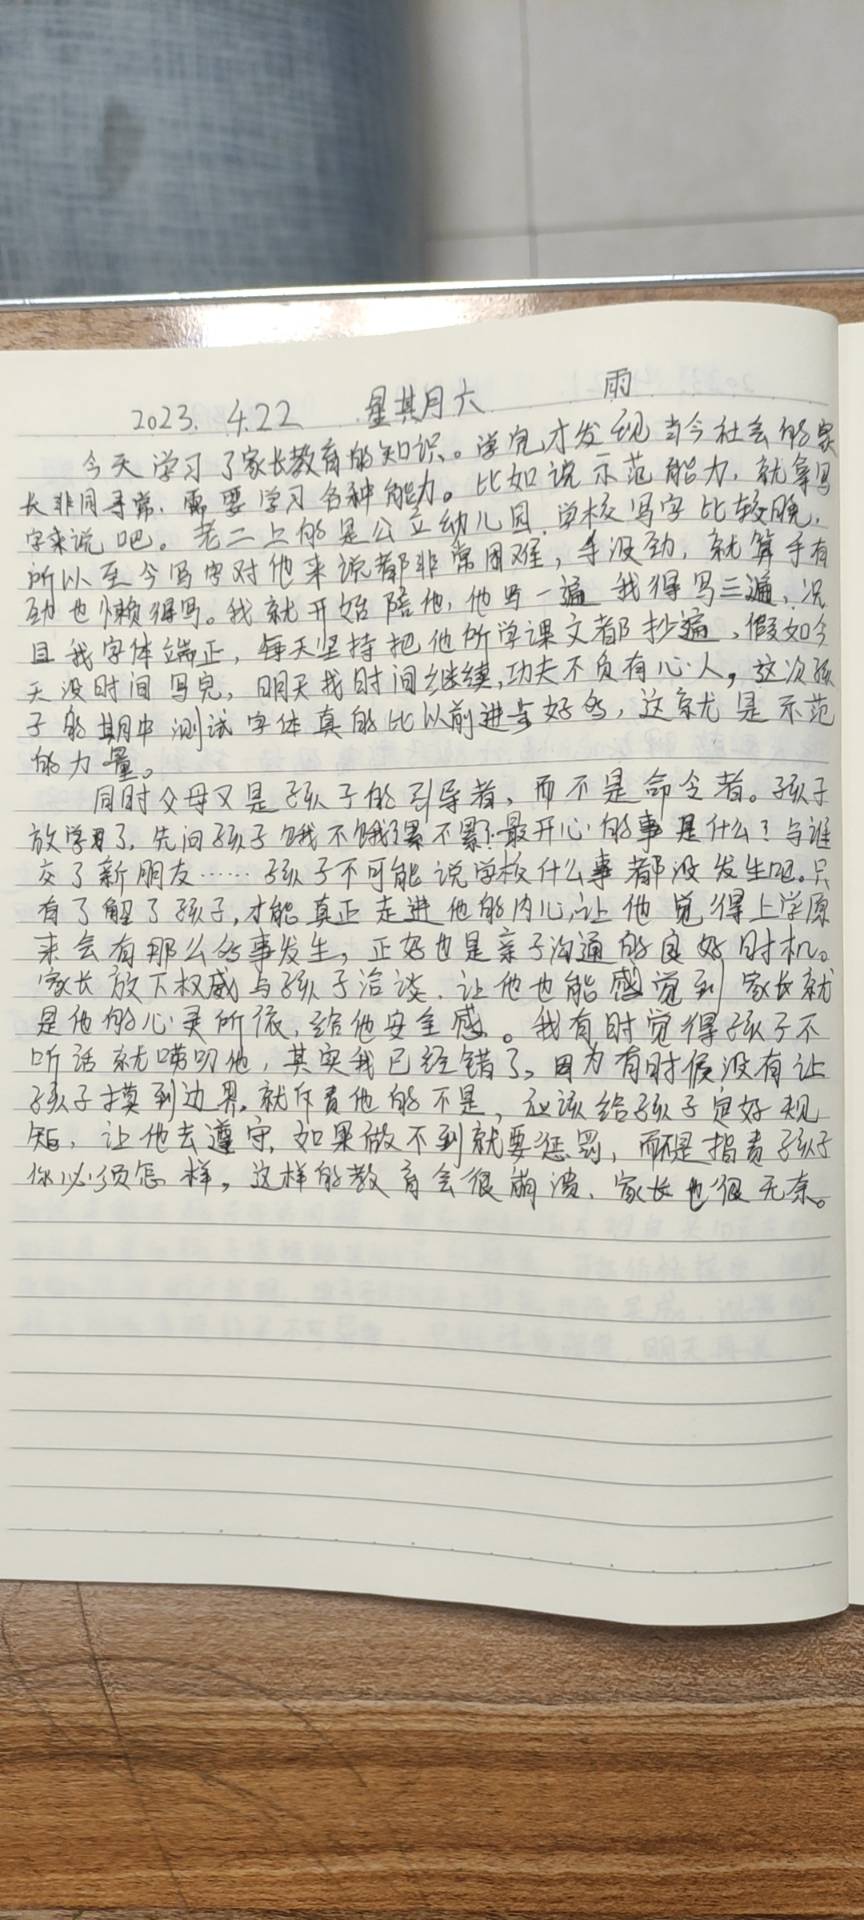 2023. 4.22 星其月六 雨
今天学习了家长教育的知识。学完才发现当今社会的家
长非同寻常,需要学习各种能力。比如说示范能力,就拿写
字来说吧。老二上的是公立幼儿园,学校写字比较晚,
所以至今写字对他来说都非常困难,手没劲,就算手有
劲也懒得写。我就开始陪他,他写一遍我得写三遍,况
且我字体端正,每天坚持把他所学课文都抄遍,假如今
天没时间写完,明天找时间继续,功夫不负有心人,这次孩
子的期中测试字体真的比以前进步好多,这就是示范
的力量。
同时父母又是孩子的引导者,而不是命令者。孩子
放学了,先问孩子饿不饿?累不累?最开心的事是什么?与谁
交了新朋友……孩子不可能说学校什么事都没发生吧。只
有了解了孩子,才能真正走进他的内心,让他觉得上学原
来会有那么多事发生,正好也是亲子沟通的良好时机。
家长放下权威与孩子洽谈,让他也能感觉到家长就
是他的心灵所依,给他安全感。我有时觉得孩子不
听话就唠叨他,其实我已经错了。因为有时候没有让
孩子摸到边界,就斥责他的不是,应该给孩子定好规
矩,让他去遵守,如果做不到就要惩罚,而不是指责孩子
你必须怎样,这样的教育会很崩溃,家长也很无奈。